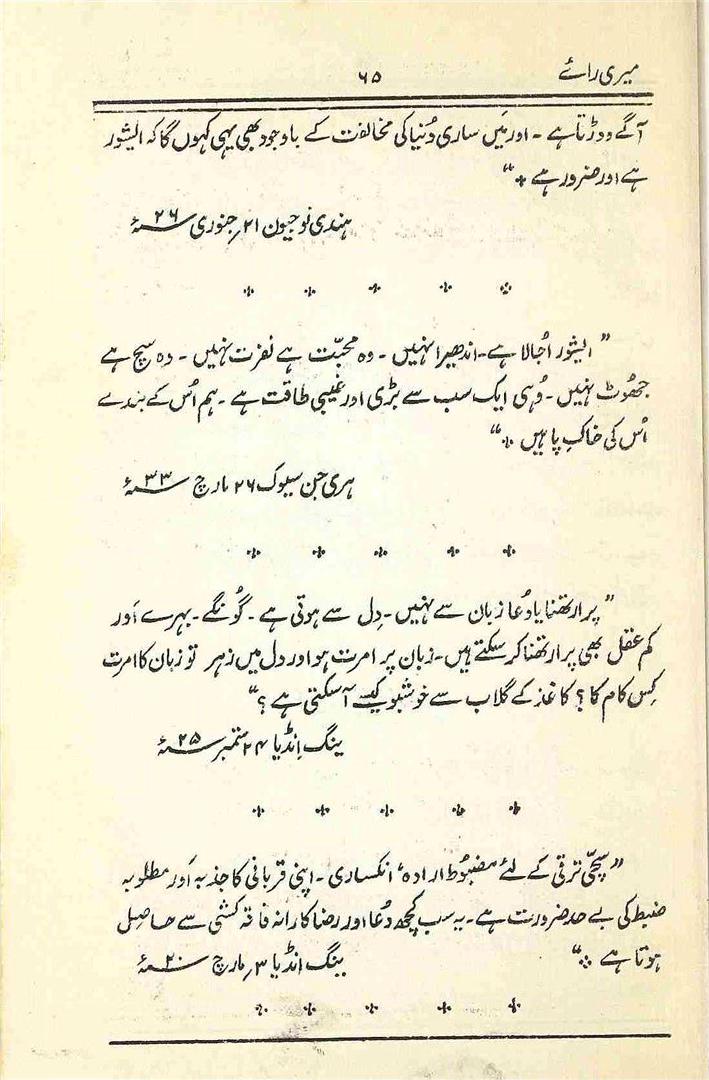 میری رائے ۶۵
آگے دوڑتا ہے ۔ اور مَیں ساری دُنیا کی مخالفت کے باوجود بھی یہی کہوں گا کہ ایشور
ہے اور ضرور ہے ٭“
ہندی نوجیون ۲۱؍ جنوری ۲۶ء
”ایشور اُجالا ہے۔ اندھیرا نہیں ۔ وہ محبّت ہے نفرت نہیں ۔ وہ سچ ہے
جھُوٹ نہیں ۔ وُہی ایک سب سے بڑی اور غیبی طاقت ہے ۔ ہم اُس کے بندے
اُس کی خاکِ پا ہیں ٭“
ہری جن سیوک ۲۶ مارچ ۳۳ء
”پرارتھنا یا دُعا زبان سے نہیں ۔ دِل سے ہوتی ہے ۔ گُونگے ۔ بہرے اَور
کم عقل بھی پرارتھنا کر سکتے ہیں ۔ زبان پر امرت ہو اور دل میں زہر تو زبان کا امرت
کِس کام کا ؟ کاغذ کے گلاب سے خوشبو کیسے آ سکتی ہے ؟“
ینگ اِنڈیا ۲۴ ستمبر ۲۵ء
”سچّی ترقی کے لئے مضبُوط ارادہ، انکساری ۔ اپنی قربانی کا جذبہ اَور مطلوبہ
ضبط کی بے حد ضرورت ہے ۔ یہ سب کچھ دُعا اور رضاکارانہ فاقہ کشی سے حاصِل
ہوتا ہے ٭“ ینگ انڈیا ۳؍ مارچ ۲۰ء